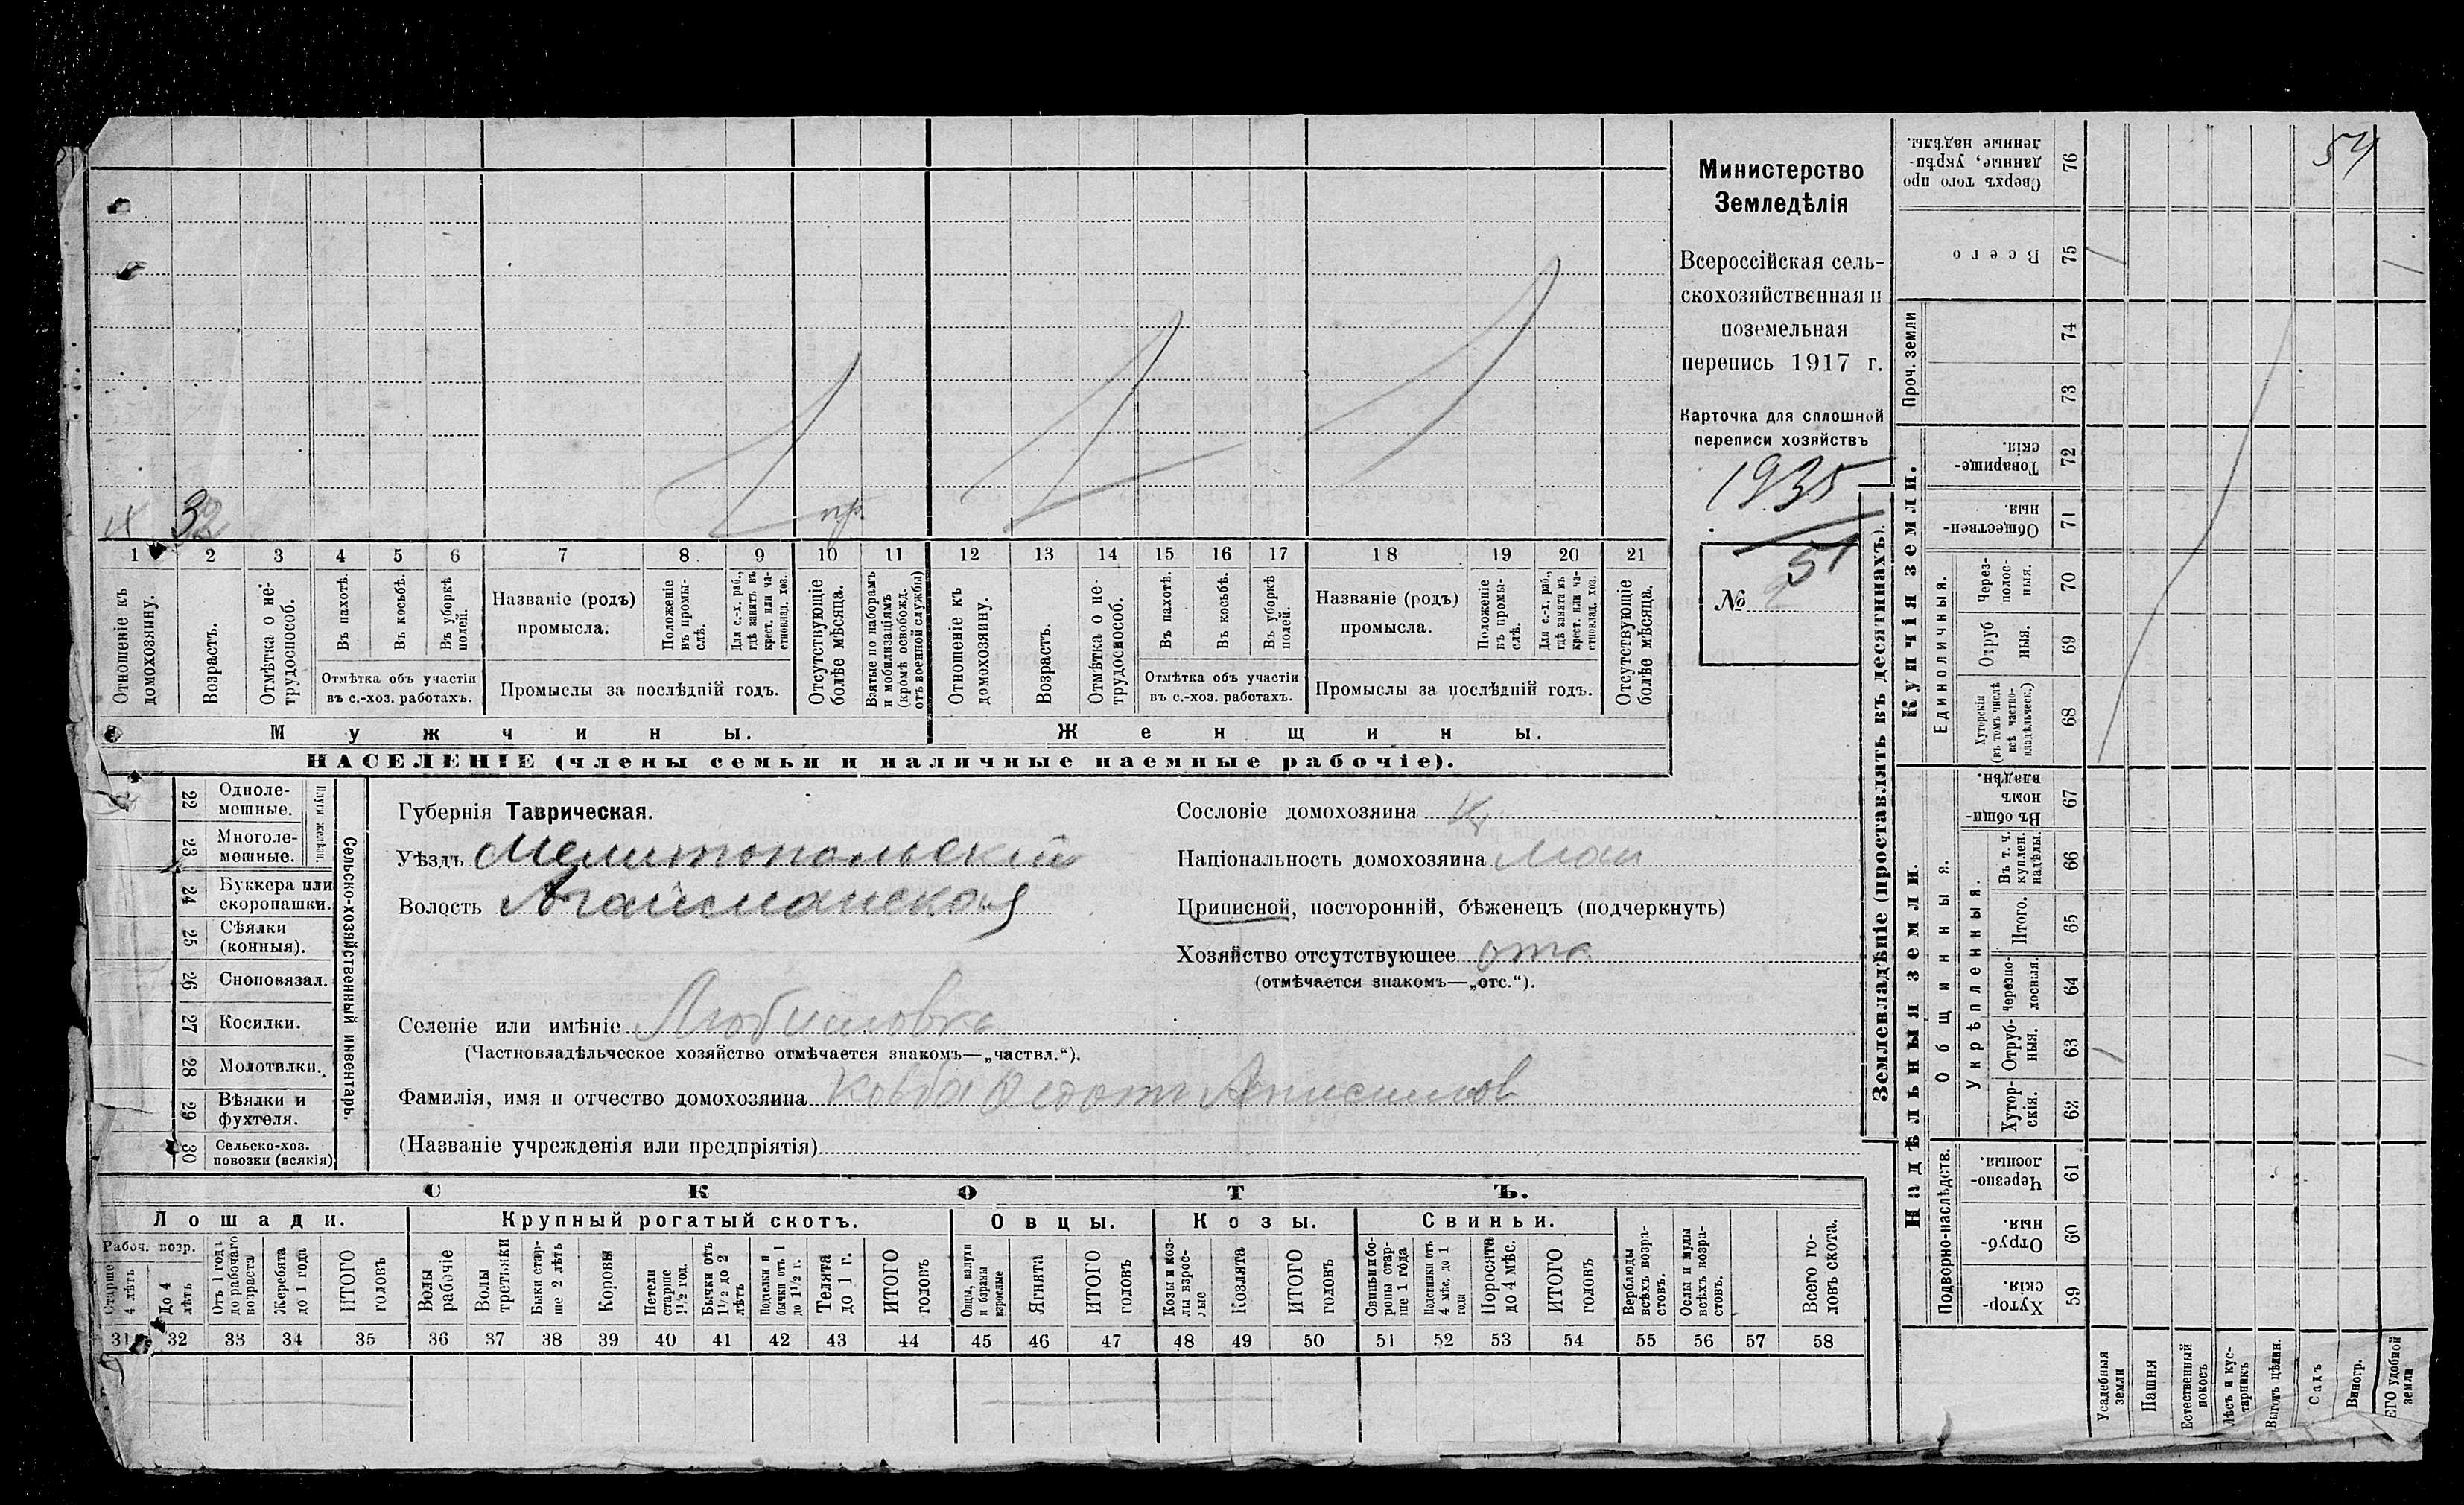 54
Министерство
Земледѣлія
Всероссійская сель-
скохозяйственная и
поземельная
перепись 1917 г.
Карточка для сплошной
переписи хозяйствъ
1935
51
№
х 32 пр.
1 2 3 4 5 6 7 8 9 10 11 12 13 14 15 16 17 18 19 20 21
Отношеніе къ домохозяину.
Возрастъ.
Отмѣтка о не-трудоспособ.
Въ пахотѣ.
Въ косьбѣ.
Въ уборкѣ полей.
Отмѣтка объ участіи
въ с.-хоз. работахъ.
Названіе (родъ)
промысла.
Положеніе въ промы-слѣ.
Для с.-х. раб., гдѣ занятъ въ крест. или ча-стновлад. хоз.
Промыслы за послѣдній годъ.
Отсутствующіе болѣе мѣсяца.
Взятые по наборамъ и мобилизаціямъ (кромѣ освобожд. отъ военной службы)
Отношеніе къ домохозяину.
Возрастъ.
Отмѣтка о не-трудоспособ.
Въ пахотѣ.
Въ косьбѣ.
Въ уборкѣ полей.
Отмѣтка объ участіи
въ с.-хоз. работахъ.
Названіе (родъ)
промысла.
Положеніе въ промы-слѣ.
Для с.-х. раб., гдѣ занята въ крест. или ча-стновлад. хоз.
Промыслы за послѣдній годъ.
Отсутствующіе болѣе мѣсяца.
Мужчины.
Женщины.
НАСЕЛЕНІЕ (члены семьи и наличные наемные рабочіе).
22 Одноле-мешные.
23 Многоле-мешные.
Плуги желѣзн.
24 Буккера или скоропашки.
25 Сѣялки (конныя).
26 Сноповязал.
27 Косилки.
28 Молотилки.
29 Вѣялки и фухтеля.
30 Сельско-хоз. повозки (всякія)
Сельско-хозяйственный инвентарь.
Губернія Таврическая.
Уѣздъ Мелитопольскій
Волость Агайманская
Селеніе или имѣніе Любимовка
(Частновладѣльческое хозяйство отмѣчается знакомъ—„частвл.“).
Фамилія, имя и отчество домохозяина Ковба Федот Анисимов
(Названіе учрежденія или предпріятія)
Сословіе домохозяина Кр
Національность домохозяина Мал
Приписной, посторонній, бѣженецъ (подчеркнуть)
Хозяйство отсутствующее отс.
(отмѣчается знакомъ—„отс.“).
СКОТЪ.
Лошади.
Крупный рогатый скотъ.
Овцы.
Козы.
Свиньи.
Рабоч. возр.
Старше 4 лѣтъ
До 4 лѣтъ
Отъ 1 года до рабочаго возраста
Жеребята до 1 года
ИТОГО головъ
Волы рабочіе
Волы третьяки
Быки стар-ше 2 лѣтъ
Коровы
Нетели старше 1½ год.
Бычки отъ 1½ до 2 лѣтъ
Подтелки и бычки отъ 1 до 1½ г.
Телята до 1 г.
ИТОГО головъ
Овцы, валухи и бараны взрослые
Ягнята
ИТОГО головъ
Козы и коз-лы взрос-лые
Козлята
ИТОГО головъ
Свиньи бо-ровы стар-ше 1 года
Подсвинки отъ 4 мѣс. до 1 года
Поросята до 4 мѣс.
ИТОГО головъ
Верблюды всѣхъ возра-стовъ.
Ослы и мулы всѣхъ возра-стовъ.
Всего го-ловъ скота.
31 32 33 34 35 36 37 38 39 40 41 42 43 44 45 46 47 48 49 50 51 52 53 54 55 56 57 58
Землевладѣніе (проставлять въ десятинахъ).
Сверхъ того про данные, укрѣп-ленные надѣлы. 76
Всего 75
Проч. земли
74
73
Купчія земли.
Товарище-скія. 72
Обществен-ныя. 71
Единоличныя.
Через-полос-ныя. 70
Отруб ныя. 69
Хуторскія (въ томъ числѣ всѣ частно-владѣльческ.) 68
Надѣльныя земли.
Общинныя.
Въ общин-номъ владѣн. 67
Укрѣпленныя.
Въ т. ч. куплен. надѣлы 66
Итого. 65
Черезпо-лосныя. 64
Отруб-ныя. 63
Хутор-скія. 62
Подворно-наслѣдств.
Черезпо-лосныя. 61
Отруб-ныя. 60
Хутор-скія. 59
Усадебныя земли
Пашня
Естественный покосъ
Лѣсъ и кус-тарникъ
Выгонъ цѣлин.
Садъ
Виногр.
ЕГО удобной земли